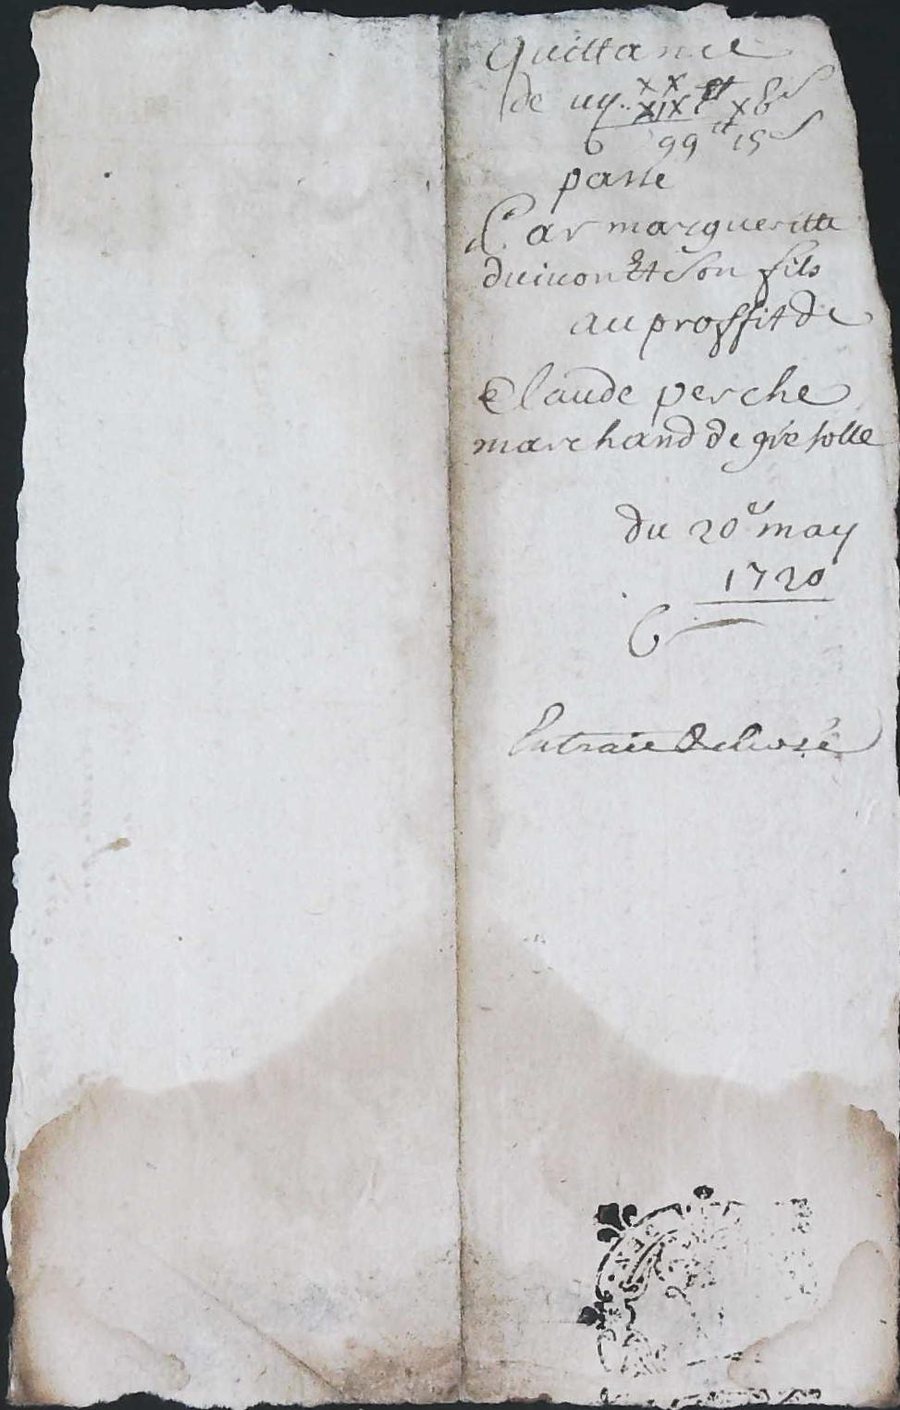 Quittance
de iiij xx xix lt xv s
99 lt 15 s
passé
Par margueritte
duivon Et son fils
au proffit de
Claude perche
marchand de gresolle
du 20e may
1720
Extraie